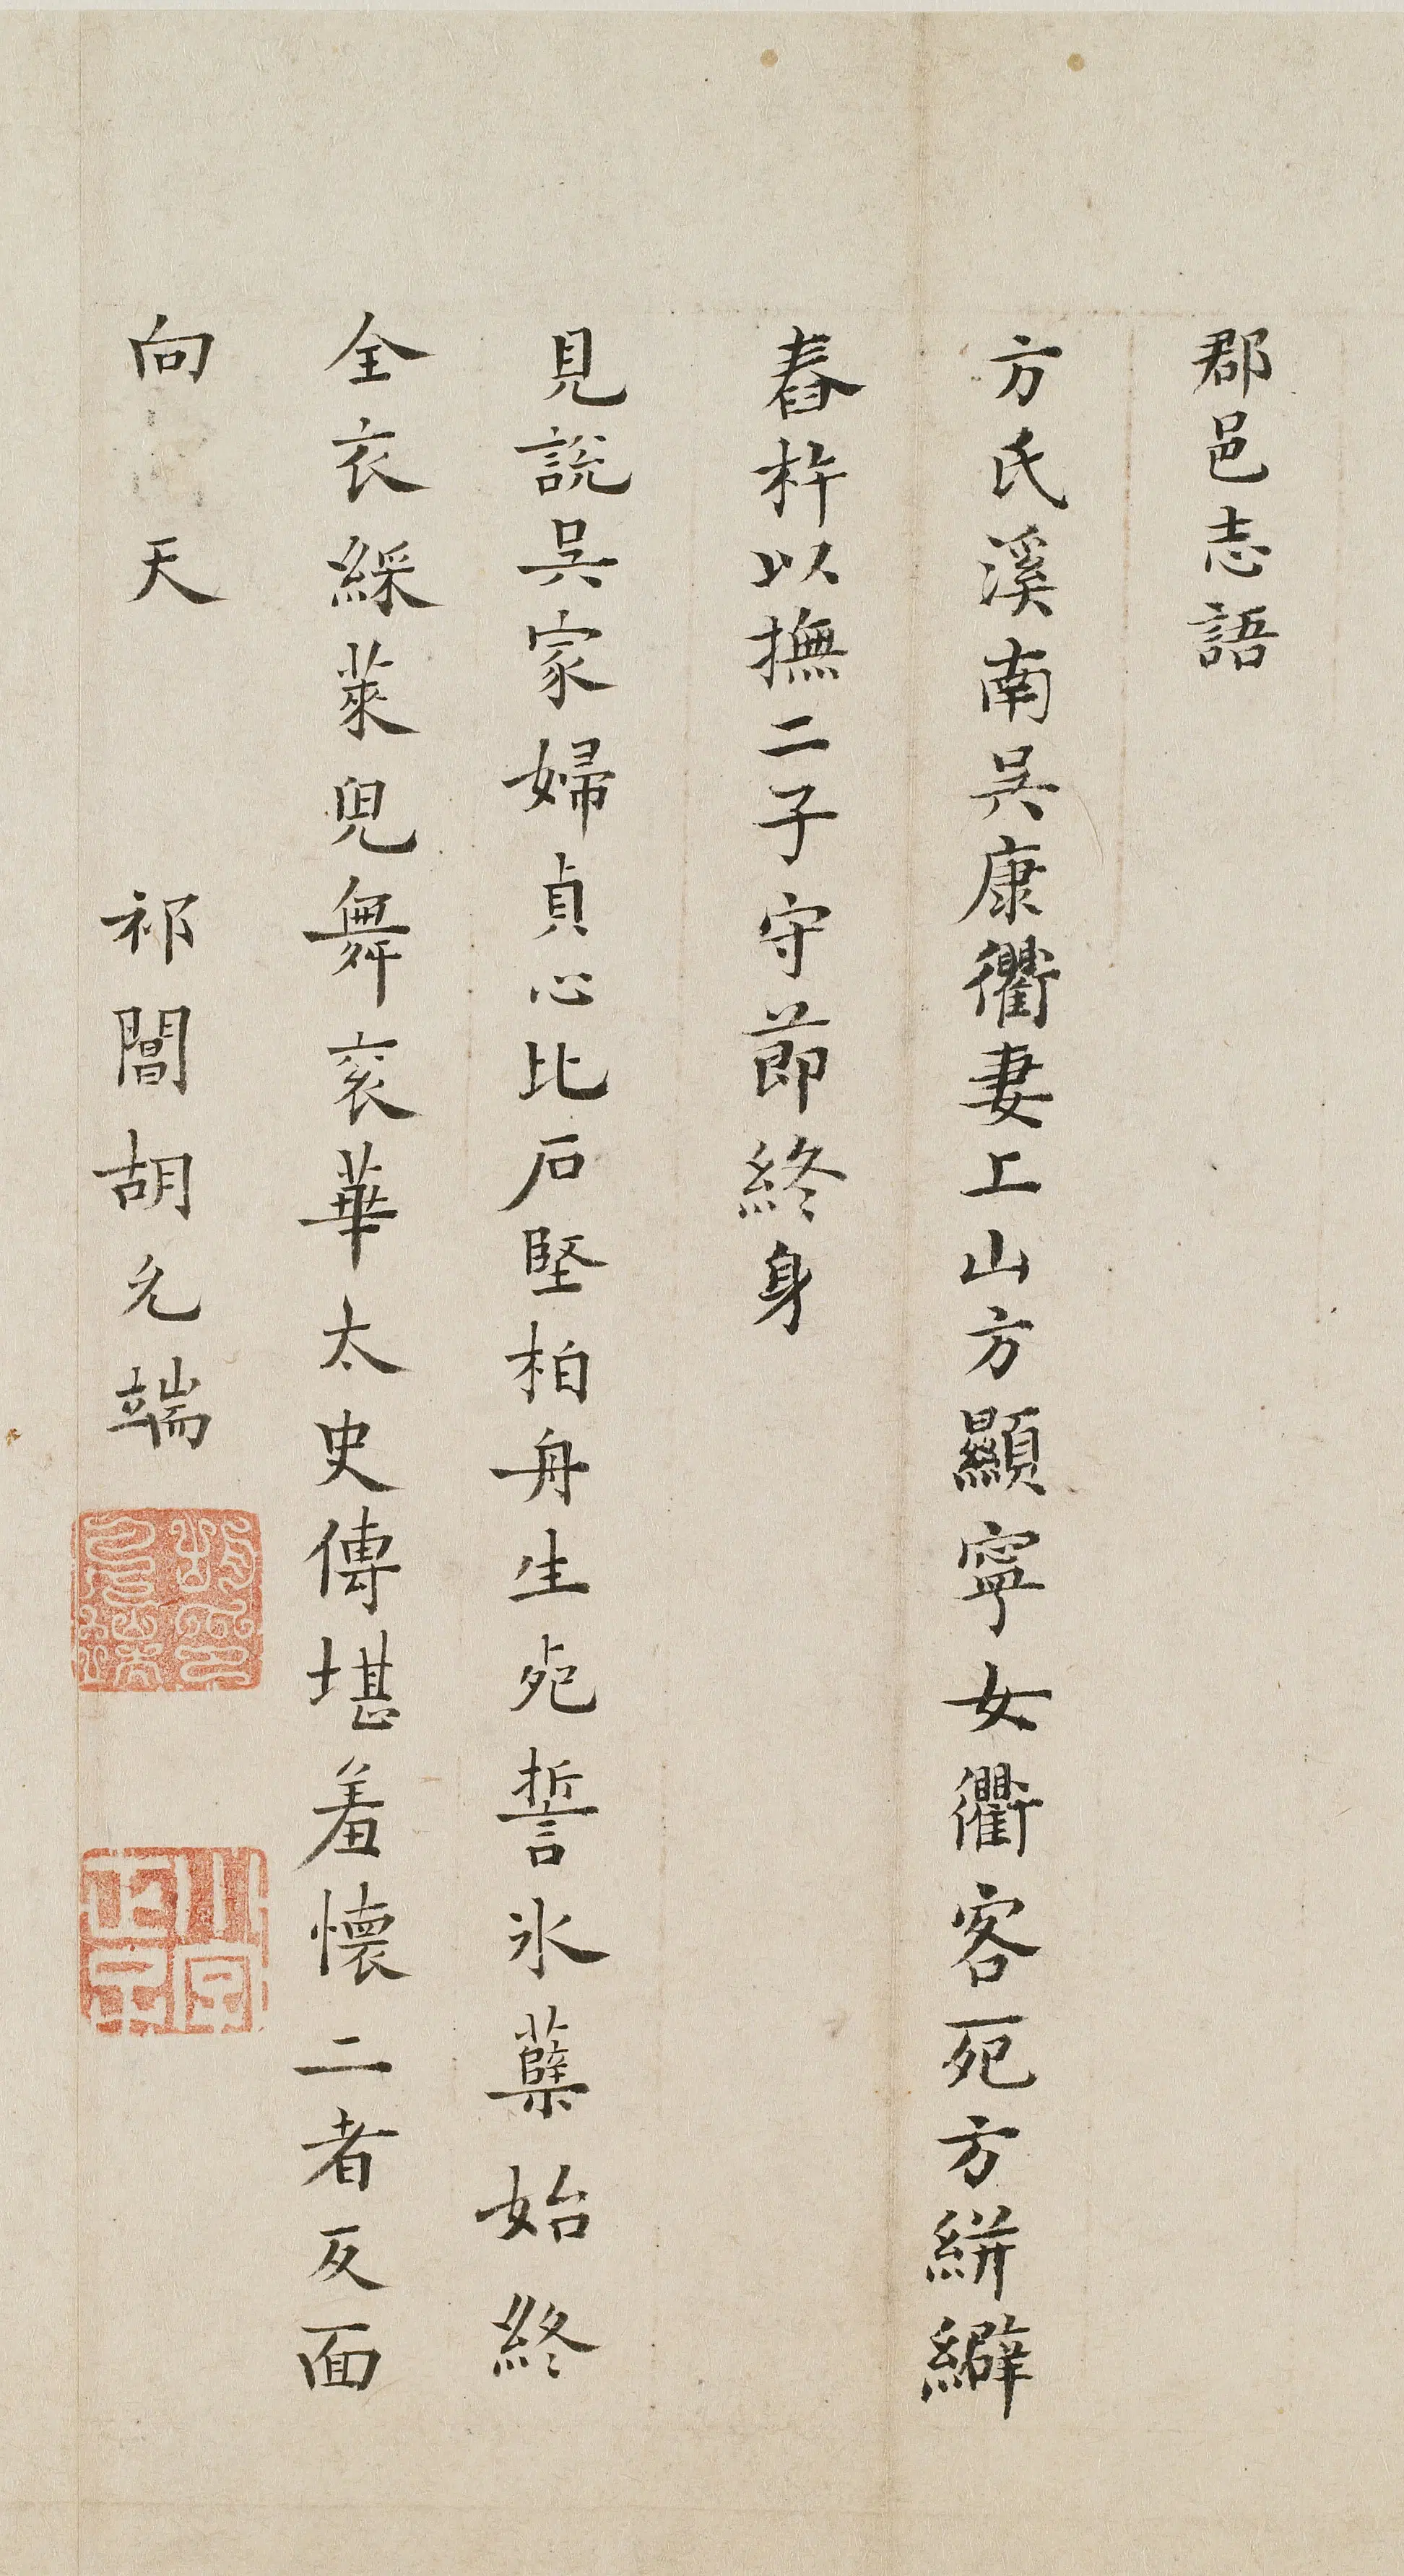 郡邑志語
方氏溪南吳康衢妻工山方顯寧女衢客死方絣繲
舂杵以撫二子守節終身
見說吳家婦貞心比石堅柏舟生死誓氷蘗始終
全衣綵萊兒舞袞華太史傳堪羞懷二者反面
向天 祁閶胡允端